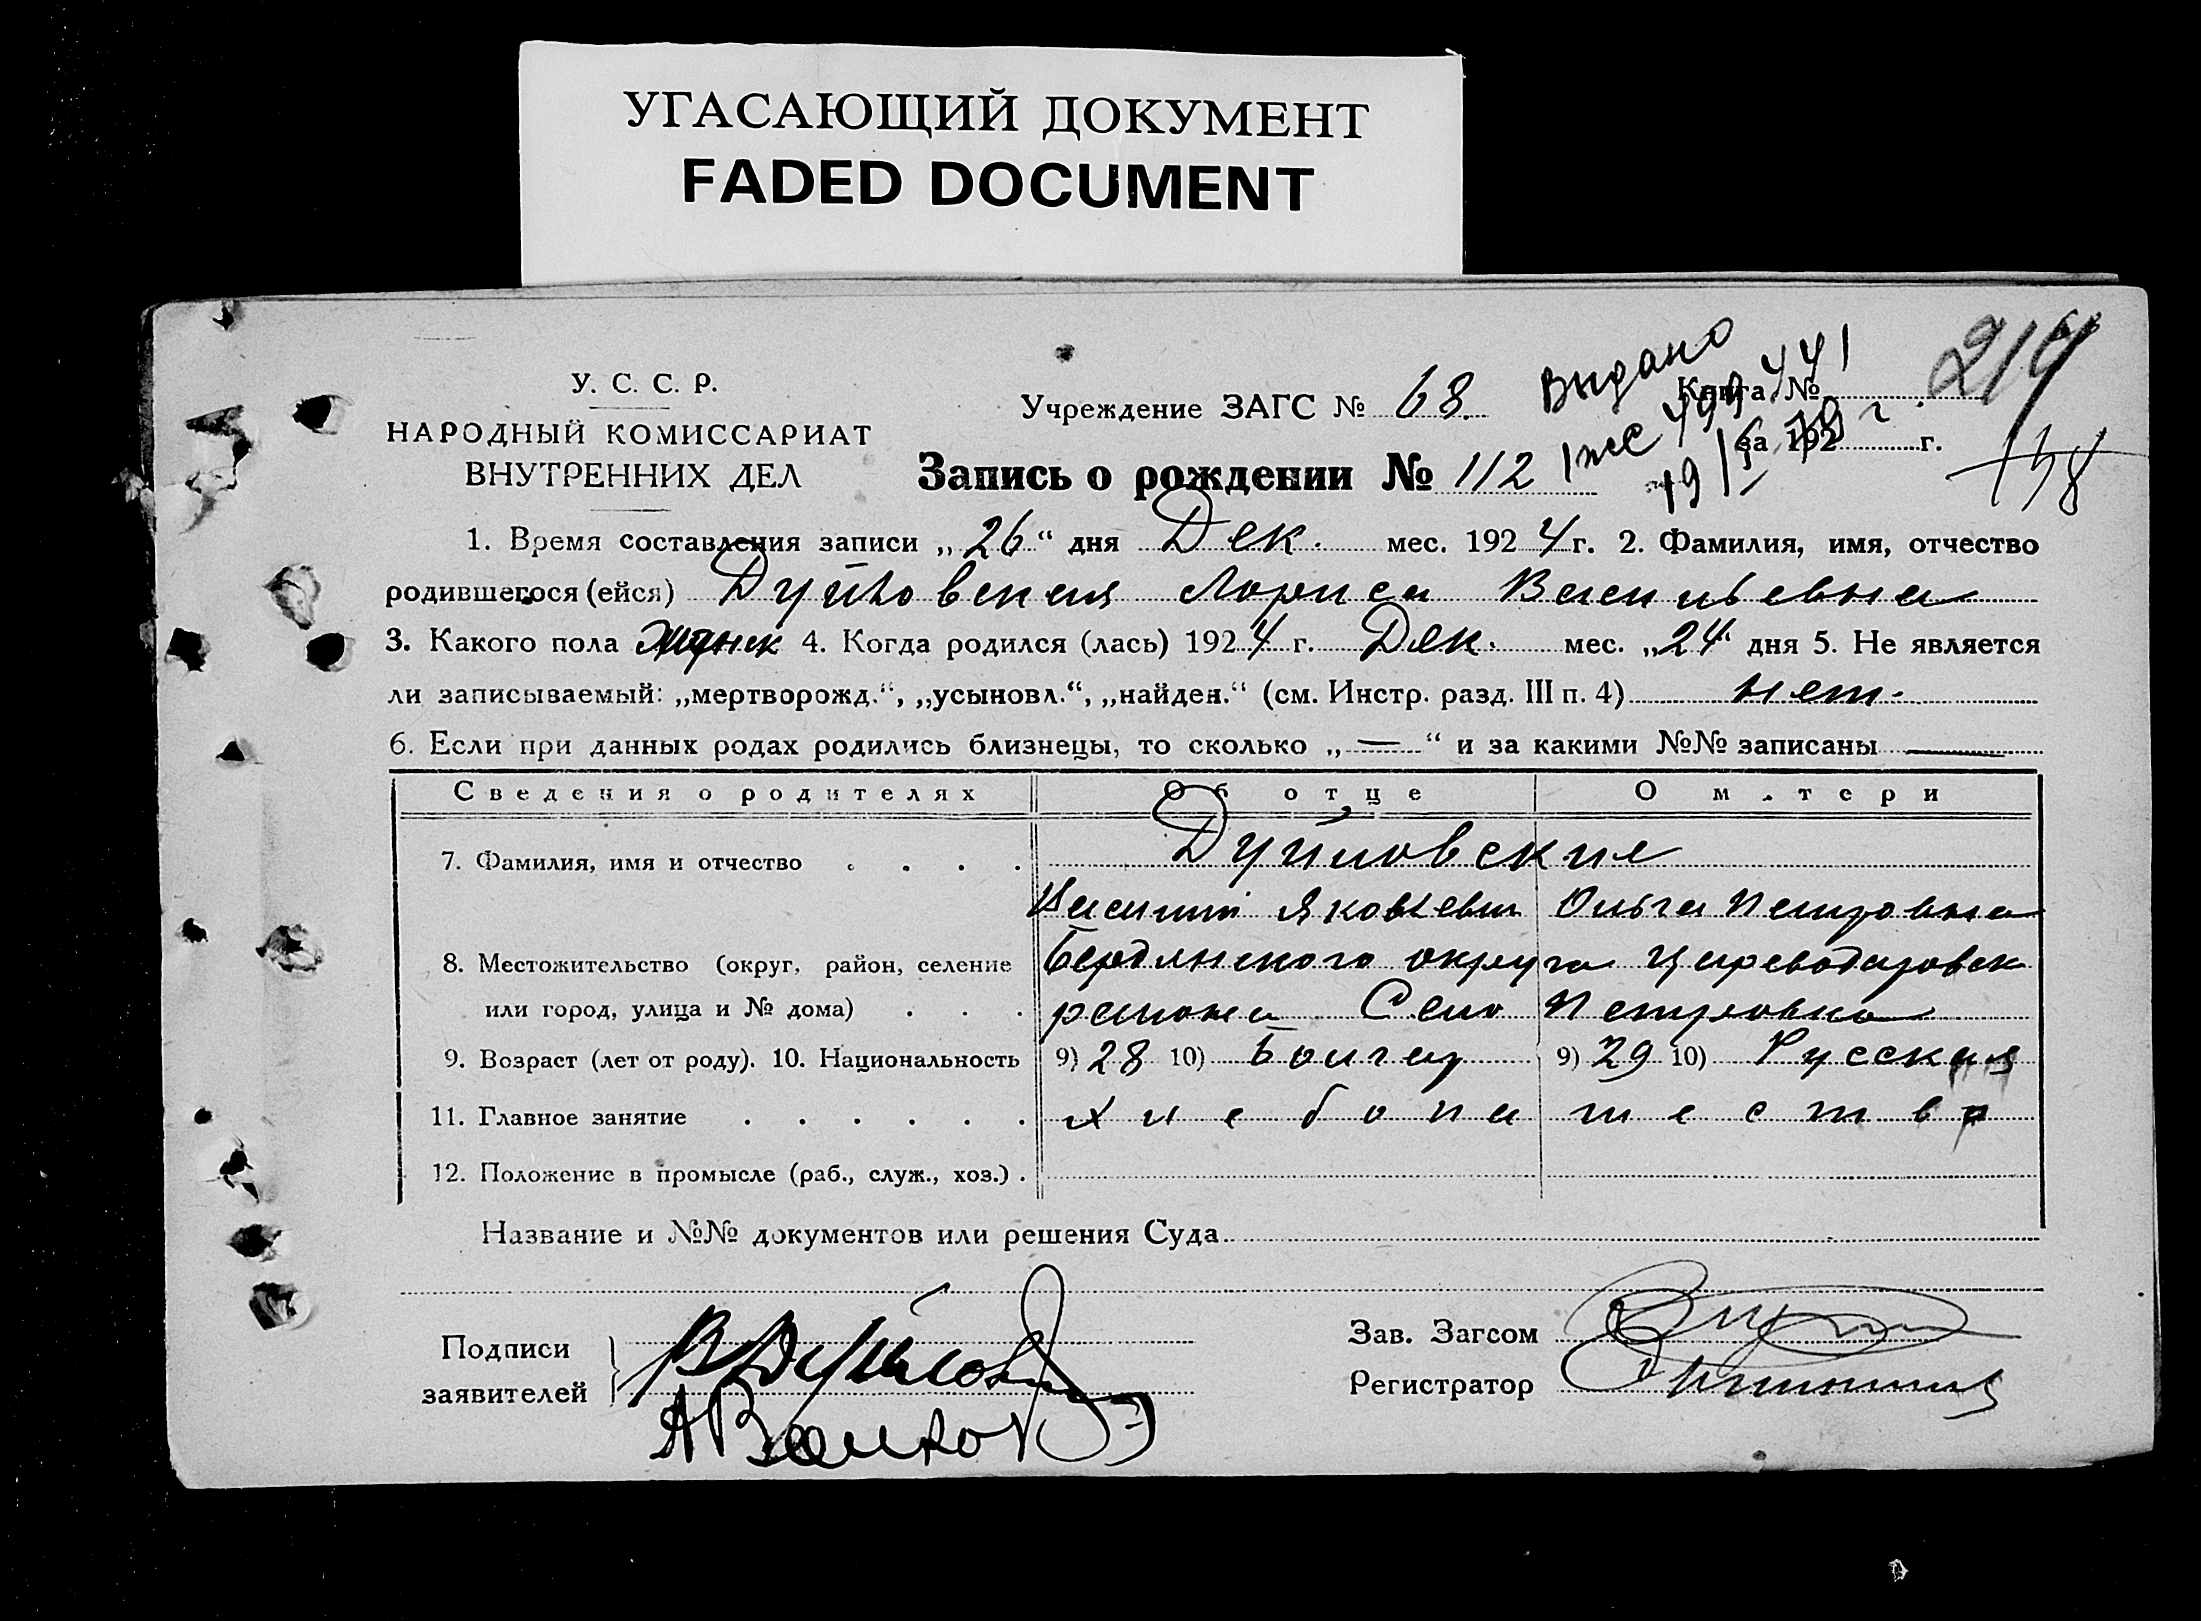 УГАСАЮЩИЙ ДОКУМЕНТ
FADED DOCUMENT
У. С. С. Р.
НАРОДНЫЙ КОМИССАРИАТ
ВНУТРЕННИХ ДЕЛ
Учреждение ЗАГС № 68.
Выдано
Книга №
214
за 192 г.
138
Запись о рождении № 112
1. Время составления записи „26“ дня Дек. мес. 1924 г. 2. Фамилия, имя, отчество
родившегося (ейся) Дуйловская Лориса Васильевна
3. Какого пола женск 4. Когда родился (лась) 1924 г. Дек. мес. „24“ дня 5. Не является
ли записываемый: „мертворожд.“, „усыновл.“, „найден.“ (см. Инстр. разд. III п. 4) нет.
6. Если при данных родах родились близнецы, то сколько „—“ и за какими №№ записаны —
Сведения о родителях Об отце О матери
7. Фамилия, имя и отчество . . . . Дуйловские
Василий Яковлевич Ольга Петровна
8. Местожительство (округ, район, селение Бердянского округа Цареводаровск
или город, улица и № дома) . . . района Село Петровка
9. Возраст (лет от роду). 10. Национальность 9) 28 10) Болгар 9) 29 10) Русская
11. Главное занятие . . . . . . хлебопашество
12. Положение в промысле (раб., служ., хоз.) .
Название и №№ документов или решения Суда
Подписи
заявителей
В Дуйловск
А Волков
Зав. Загсом
Регистратор